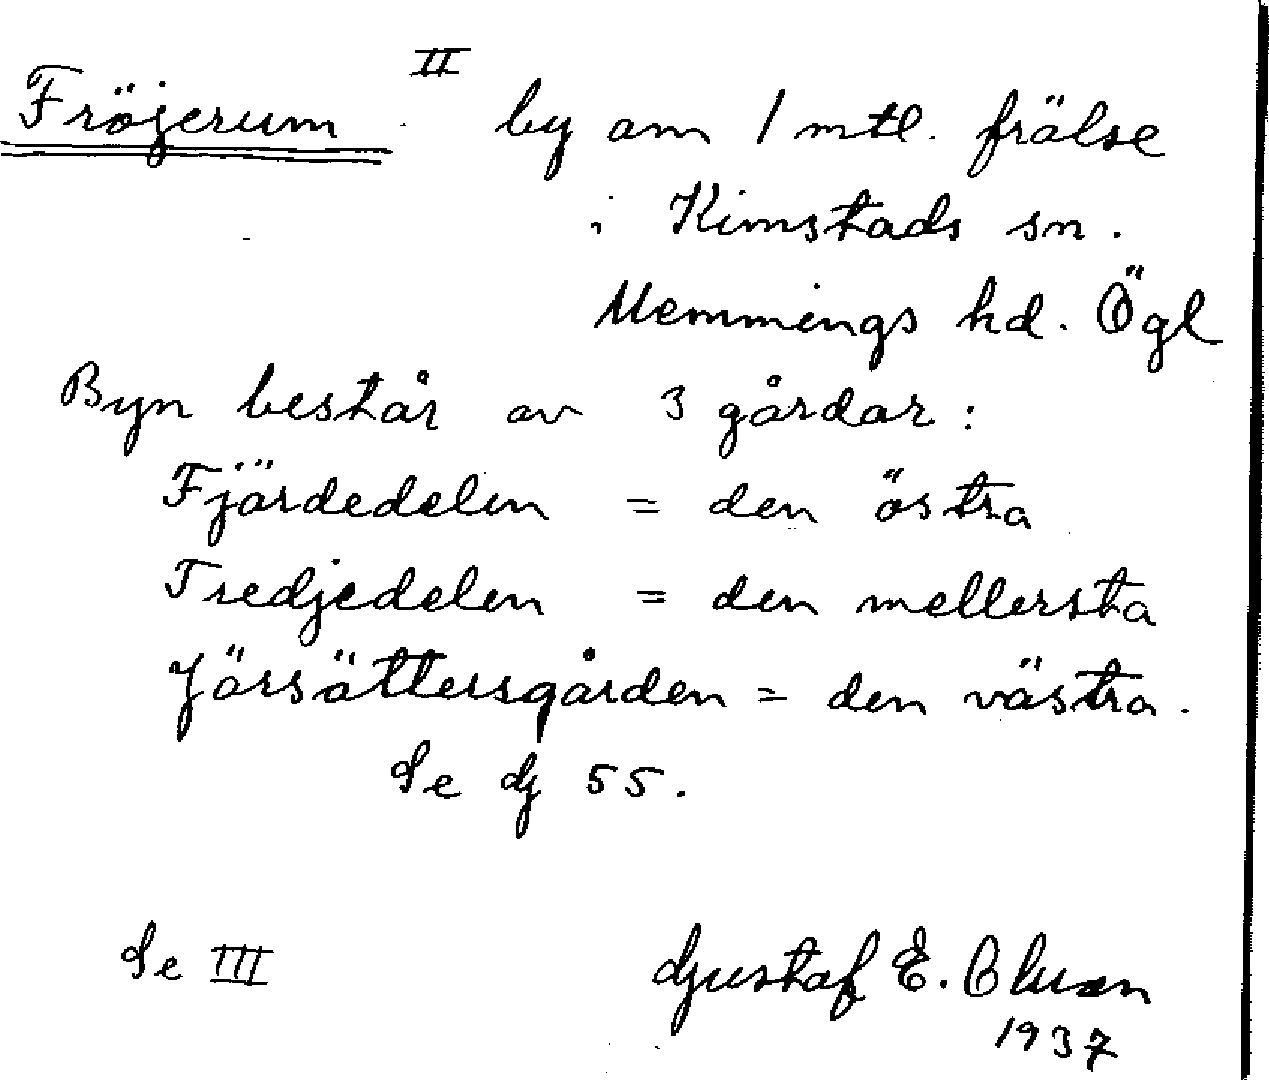 Fröjerum II by om 1 mtl. frälse
i Kimstads sn.
Memmings hd. Ögl
Byn består av 3 gårdar:
Fjärdedelen = den östra
Tredjedelen = den mellersta
Järsättersgården = den västra.
Se G 55.
Se III Gustaf E.
1937